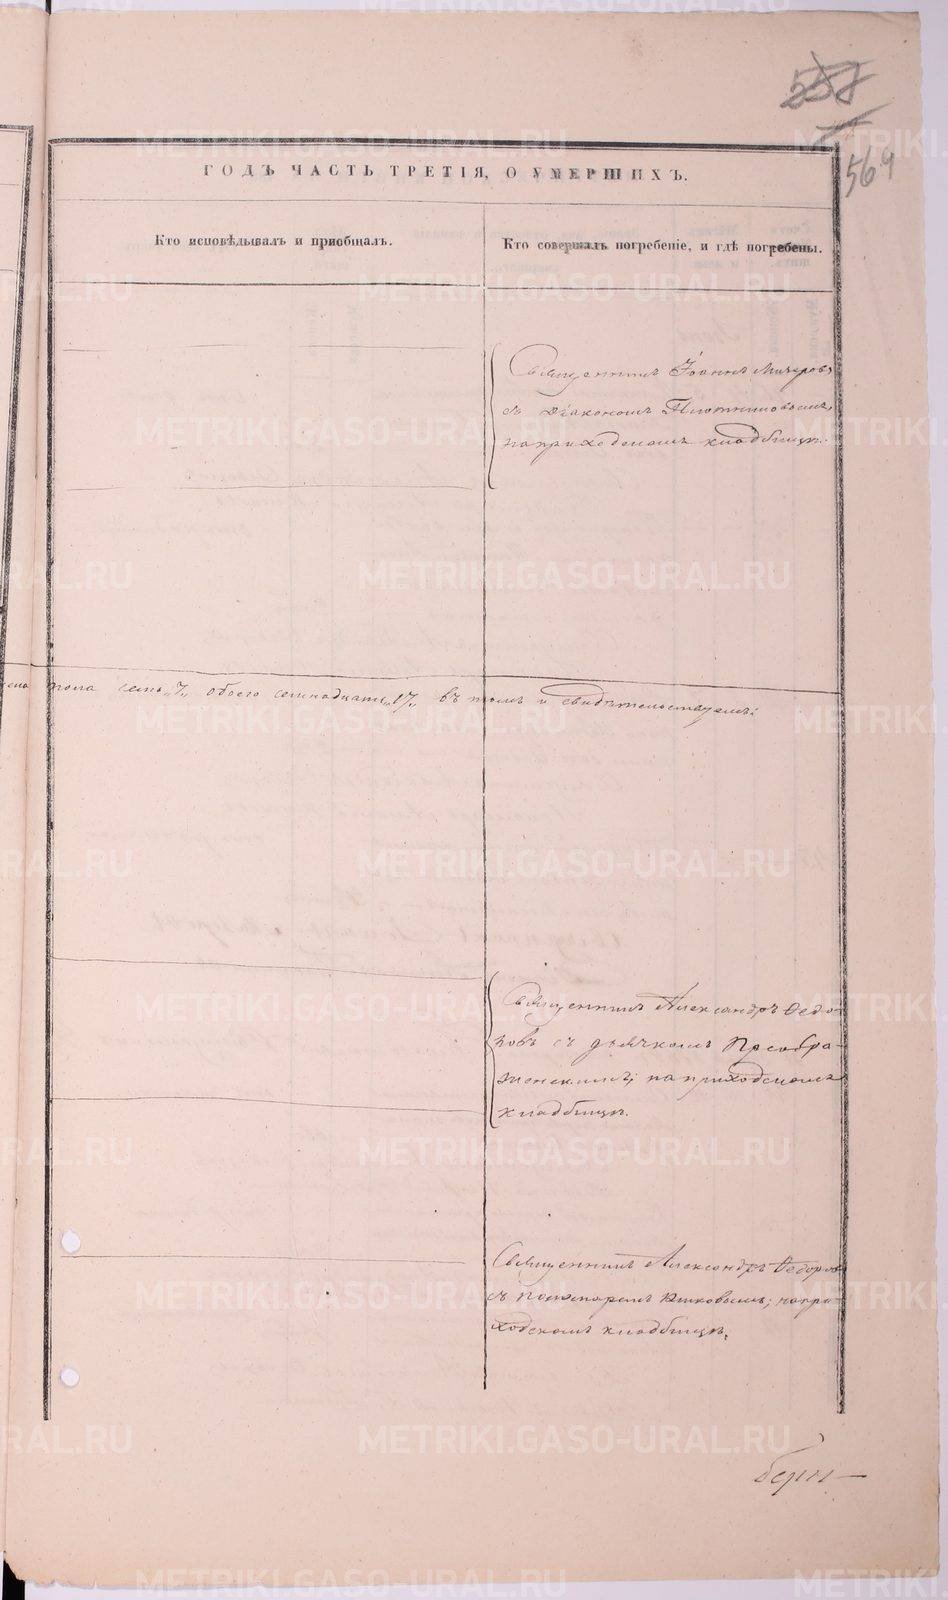 558
569
ГОДЪ ЧАСТЬ ТРЕТІЯ, О УМЕРШИХЪ.
Кто исповѣдывалъ и пріобщалъ.
Кто совершалъ погребеніе, и гдѣ погребены.
Священникъ Іоаннъ
съ діакономъ Плотниковымъ,
на приходскомъ кладбищѣ.
пола семь „7„ обоего семнадцать „17„ въ томъ и свидѣтельствуемъ:
Священникъ Александръ Ѳедо-
ровъ съ дьячкомъ Преобра-
женскимъ; на приходскомъ
кладбищѣ.
Священникъ Александръ Ѳедоровъ
съ пономаремъ на при-
ходскомъ кладбищѣ.
METRIKI.GASO-URAL.RU